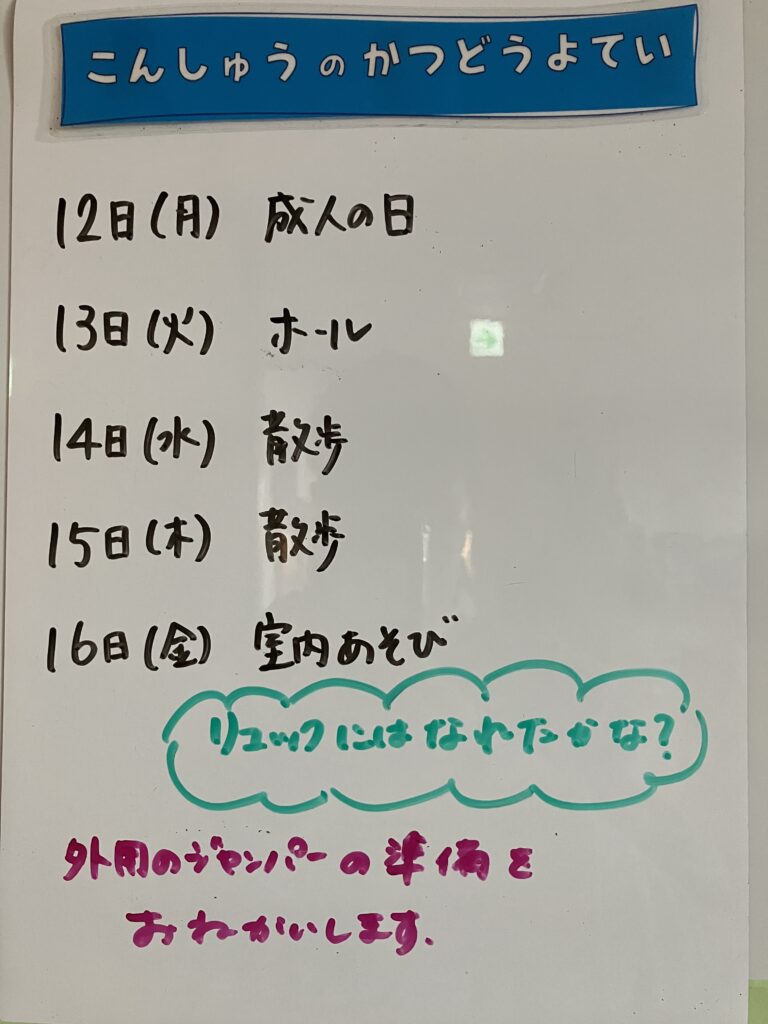 こんしゅうのかつどうよてい
12日(月) 成人の日
13日(火) ホール
14日(水) 散歩
15日(木) 散歩
16日(金) 室内あそび
リュックにはなれたかな?
外用のジャンパーの準備を
おねがいします.